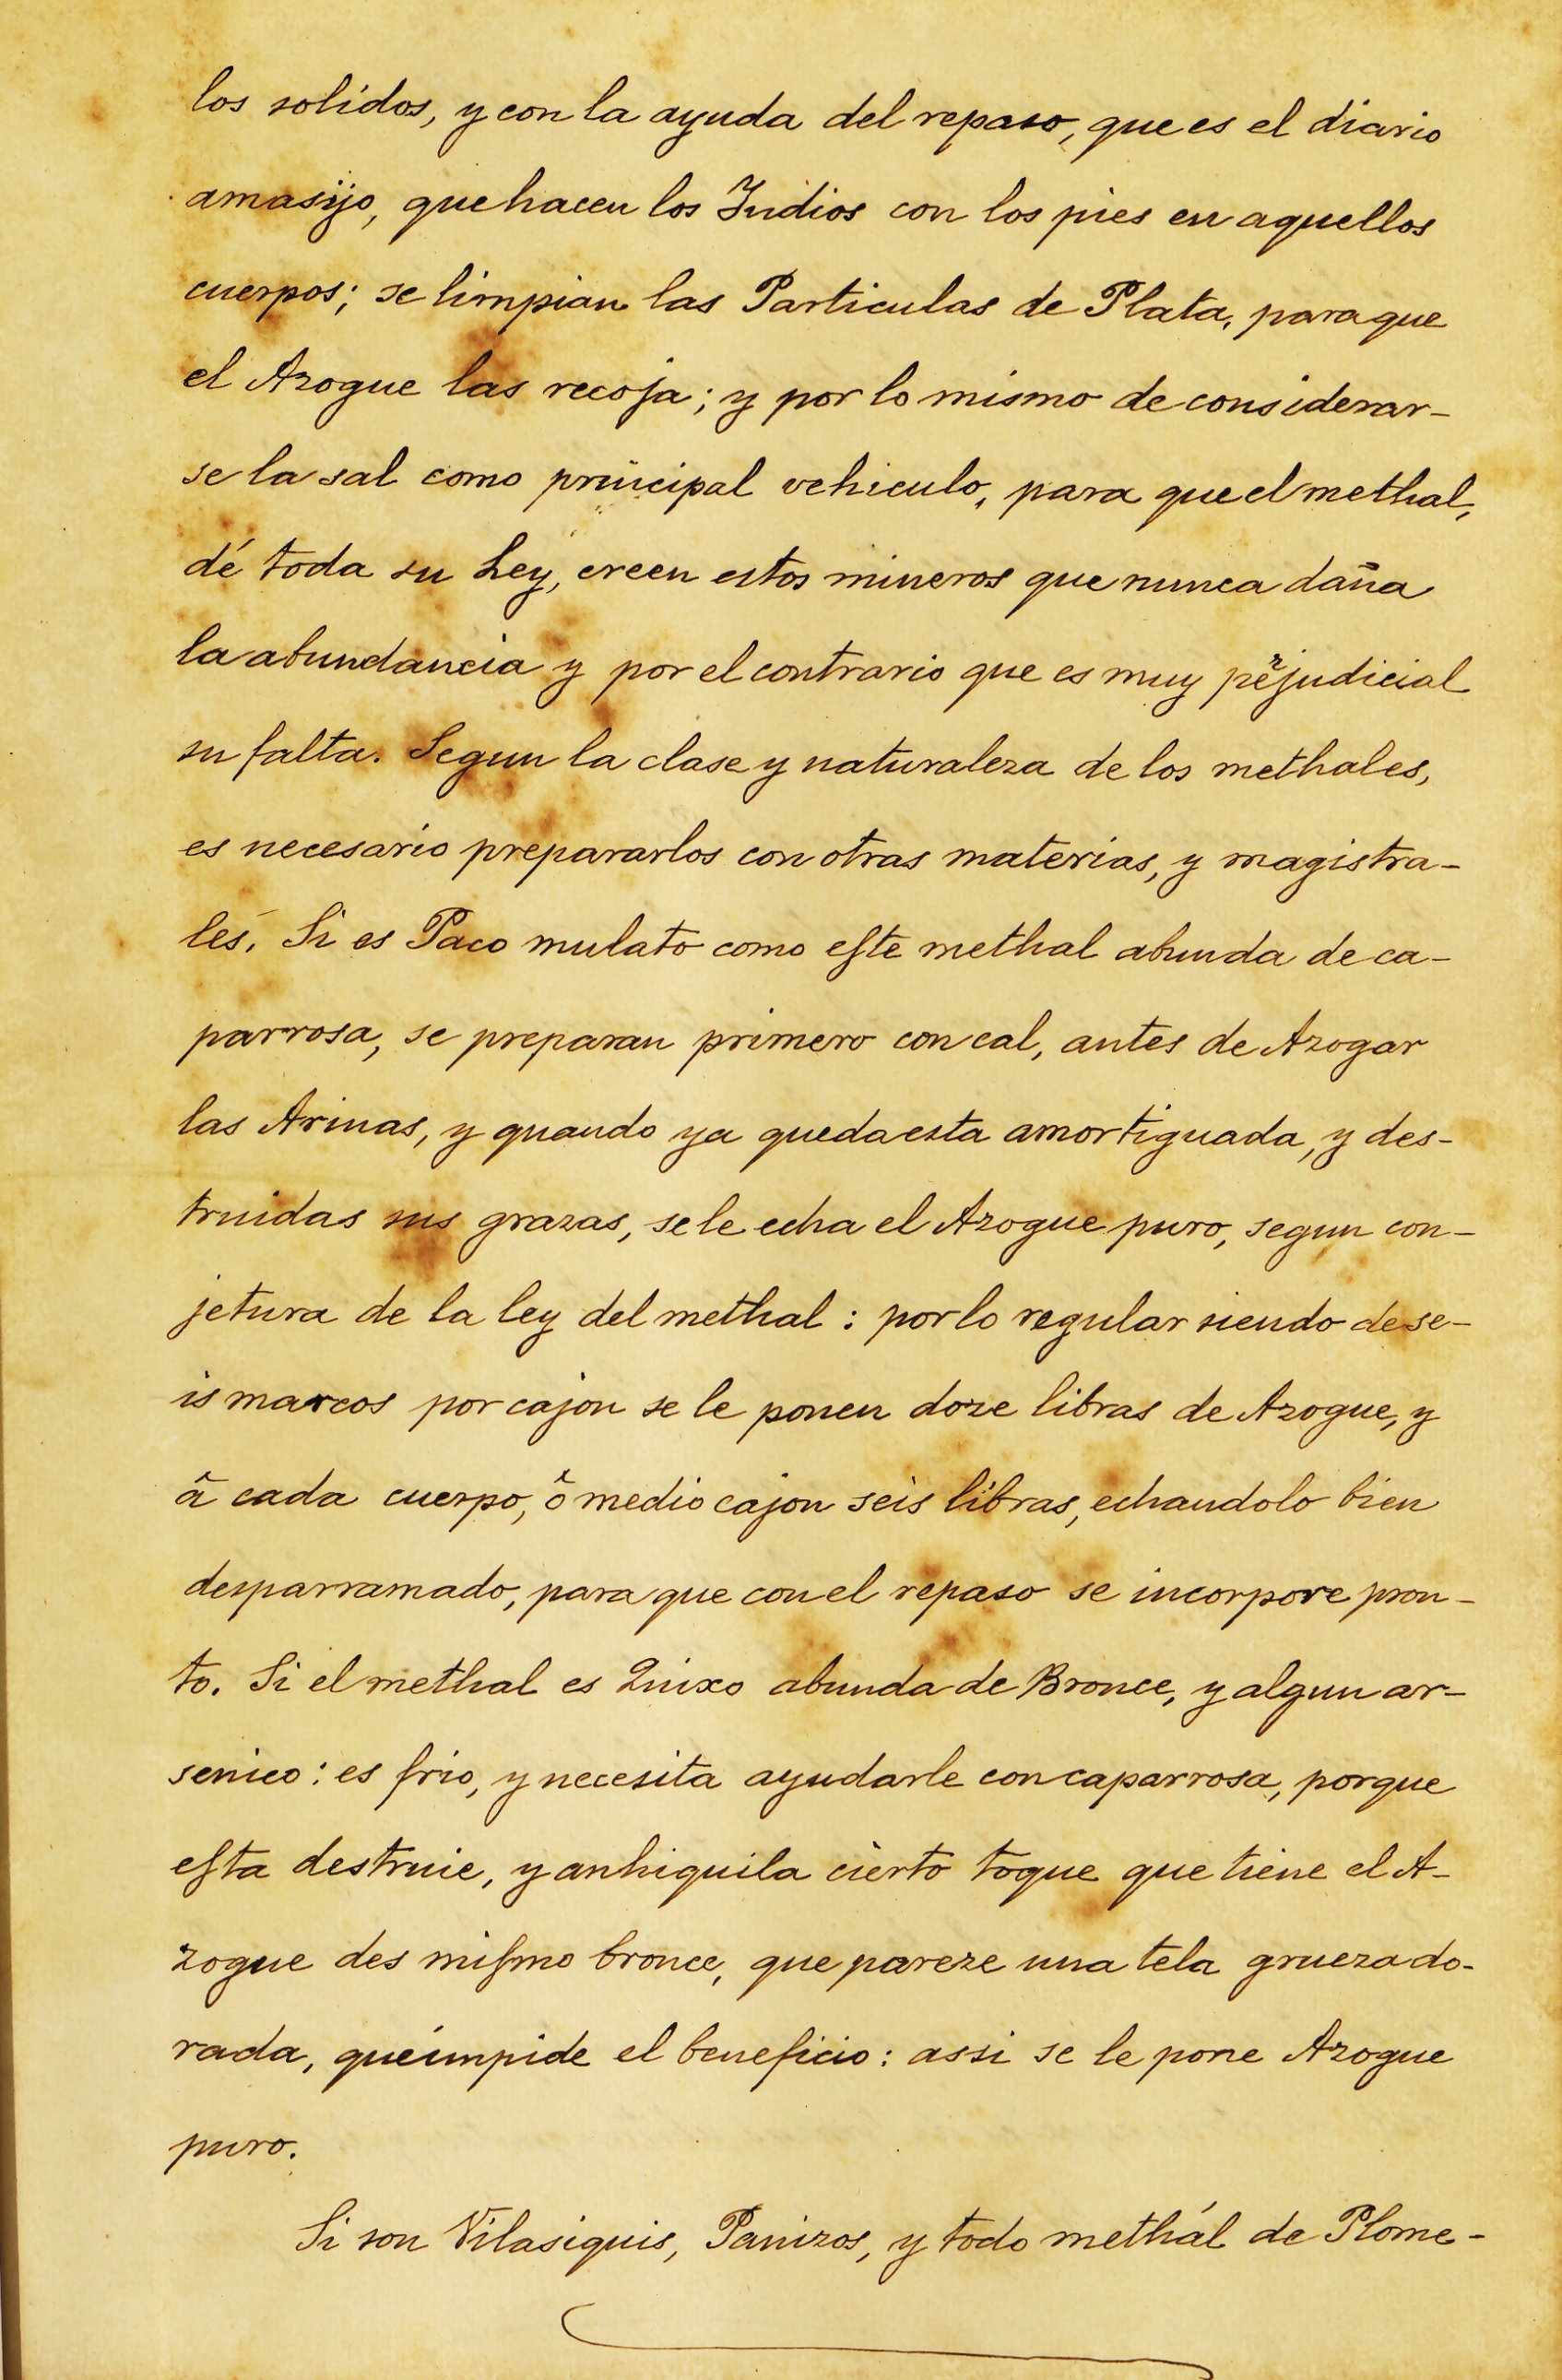 los solidos, y con la ayuda del repaso, que es el diario
amasijo, que hacen los Indios con los pies en aquellos
cuerpos; se limpian las Particulas de Plata, para que
el Azogue las recoja; y por lo mismo de considerar-
se la sal como principal vehiculo, para que el methal,
dé toda su Ley, creen estos mineros que nunca daña
la abundancia y por el contrario que es muy perjudicial
su falta. Segun la clase y naturaleza de los methales,
es necesario prepararlos con otras materias, y magistra-
les. Si es Paco mulato como efte methal abunda de ca-
parrosa, se preparan primero con cal, antes de Azogar
las Arinas, y quando ya queda esta amortiguada, y des-
truidas sus grazas, se le echa el Azogue puro, segun con-
jetura de la ley del methal : por lo regular siendo de se-
is marcos por cajon se le ponen doze libras de Azogue, y
â cada cuerpo, ô medio cajon seis libras, echandolo bien
desparramado, para que con el repaso se incorpore pron-
to. Si el methal es Quixo abunda de Bronce, y algun ar-
senico : es frio, y necesita ayudarle con caparrosa, porque
efta destruie, y anhiquila cierto toque que tiene el A-
zogue des mifmo bronce, que pareze una tela grueza do-
rada, que impide el beneficio : assi se le pone Azogue
puro.
Si son Vilasiquis, Panizos, y todo methál de Plome-